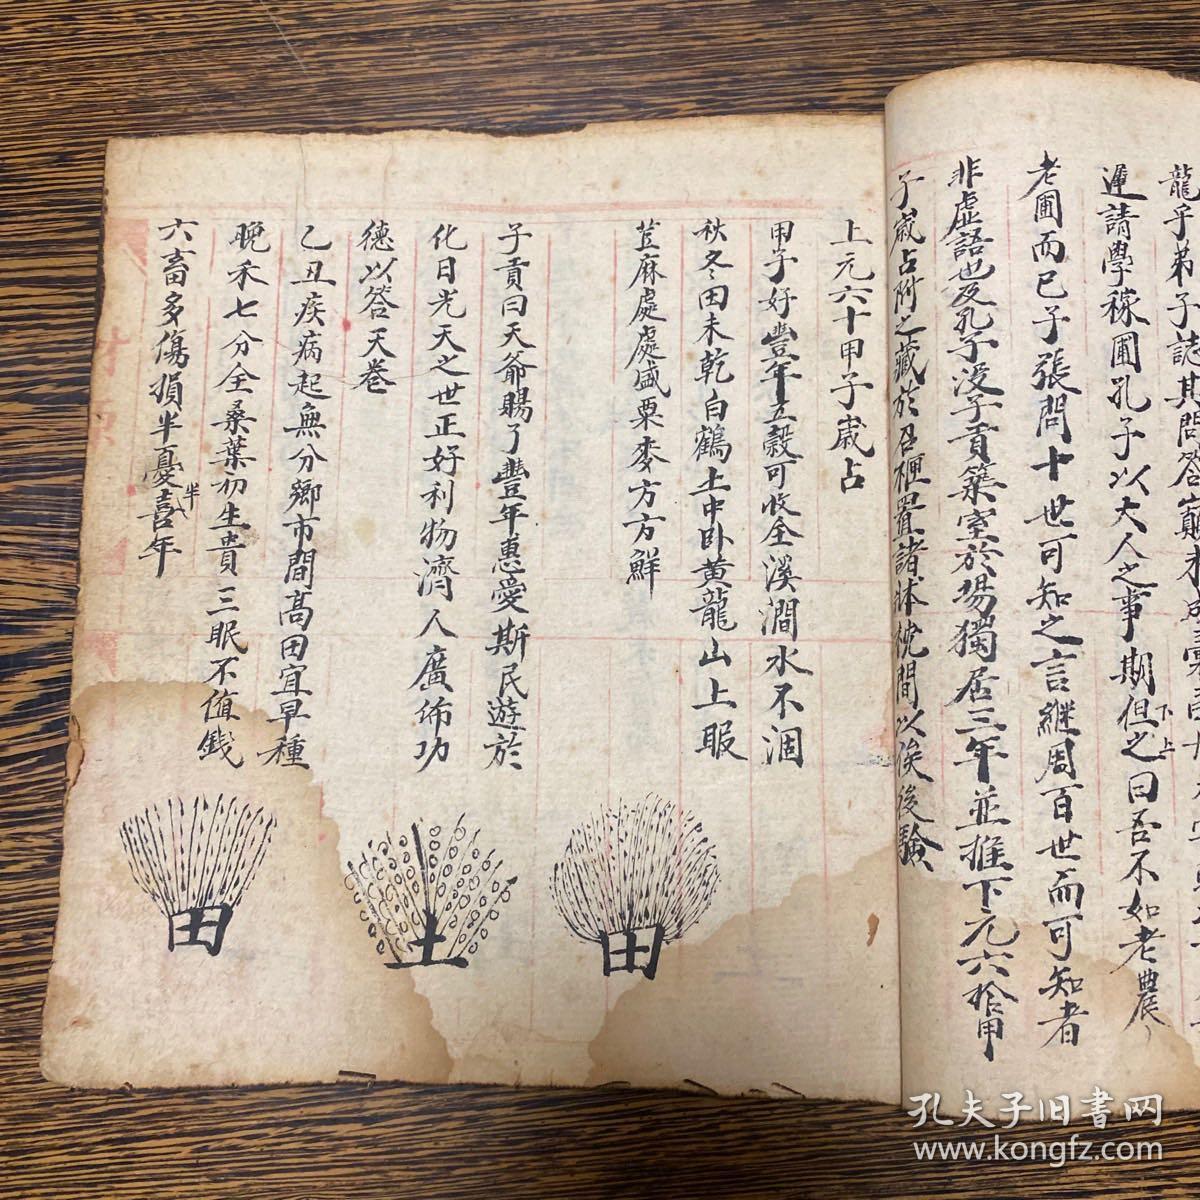 龍乎弟子誌其問答
遲請學稼圃孔子以大人之事期但之曰吾不如老農
下上
老圃而已子張問十世可知之言繼周百世而可知者
非虛語也及孔子沒子貢築室於場獨居三年並推下元六拾甲
子歲占附之藏於召櫃置諸牀枕間以俟後驗
上元六十甲子歲占
甲子好豐年五穀可收全溪澗水不涸
秋冬田未乾白鶴土中卧黄龍山上眠
荳麻處處盛粟麥方方鮮
子貢曰天爺賜了豐年惠愛斯民遊於
化日光天之世正好利物濟人廣佈功
德以答天眷
乙丑疾病起無分鄉市間高田宜早種
晚禾七分全桑葉初生貴三眠不值錢
六畜多傷損半憂半喜年
田
土
田
孔夫子旧書网
www.kongfz.com